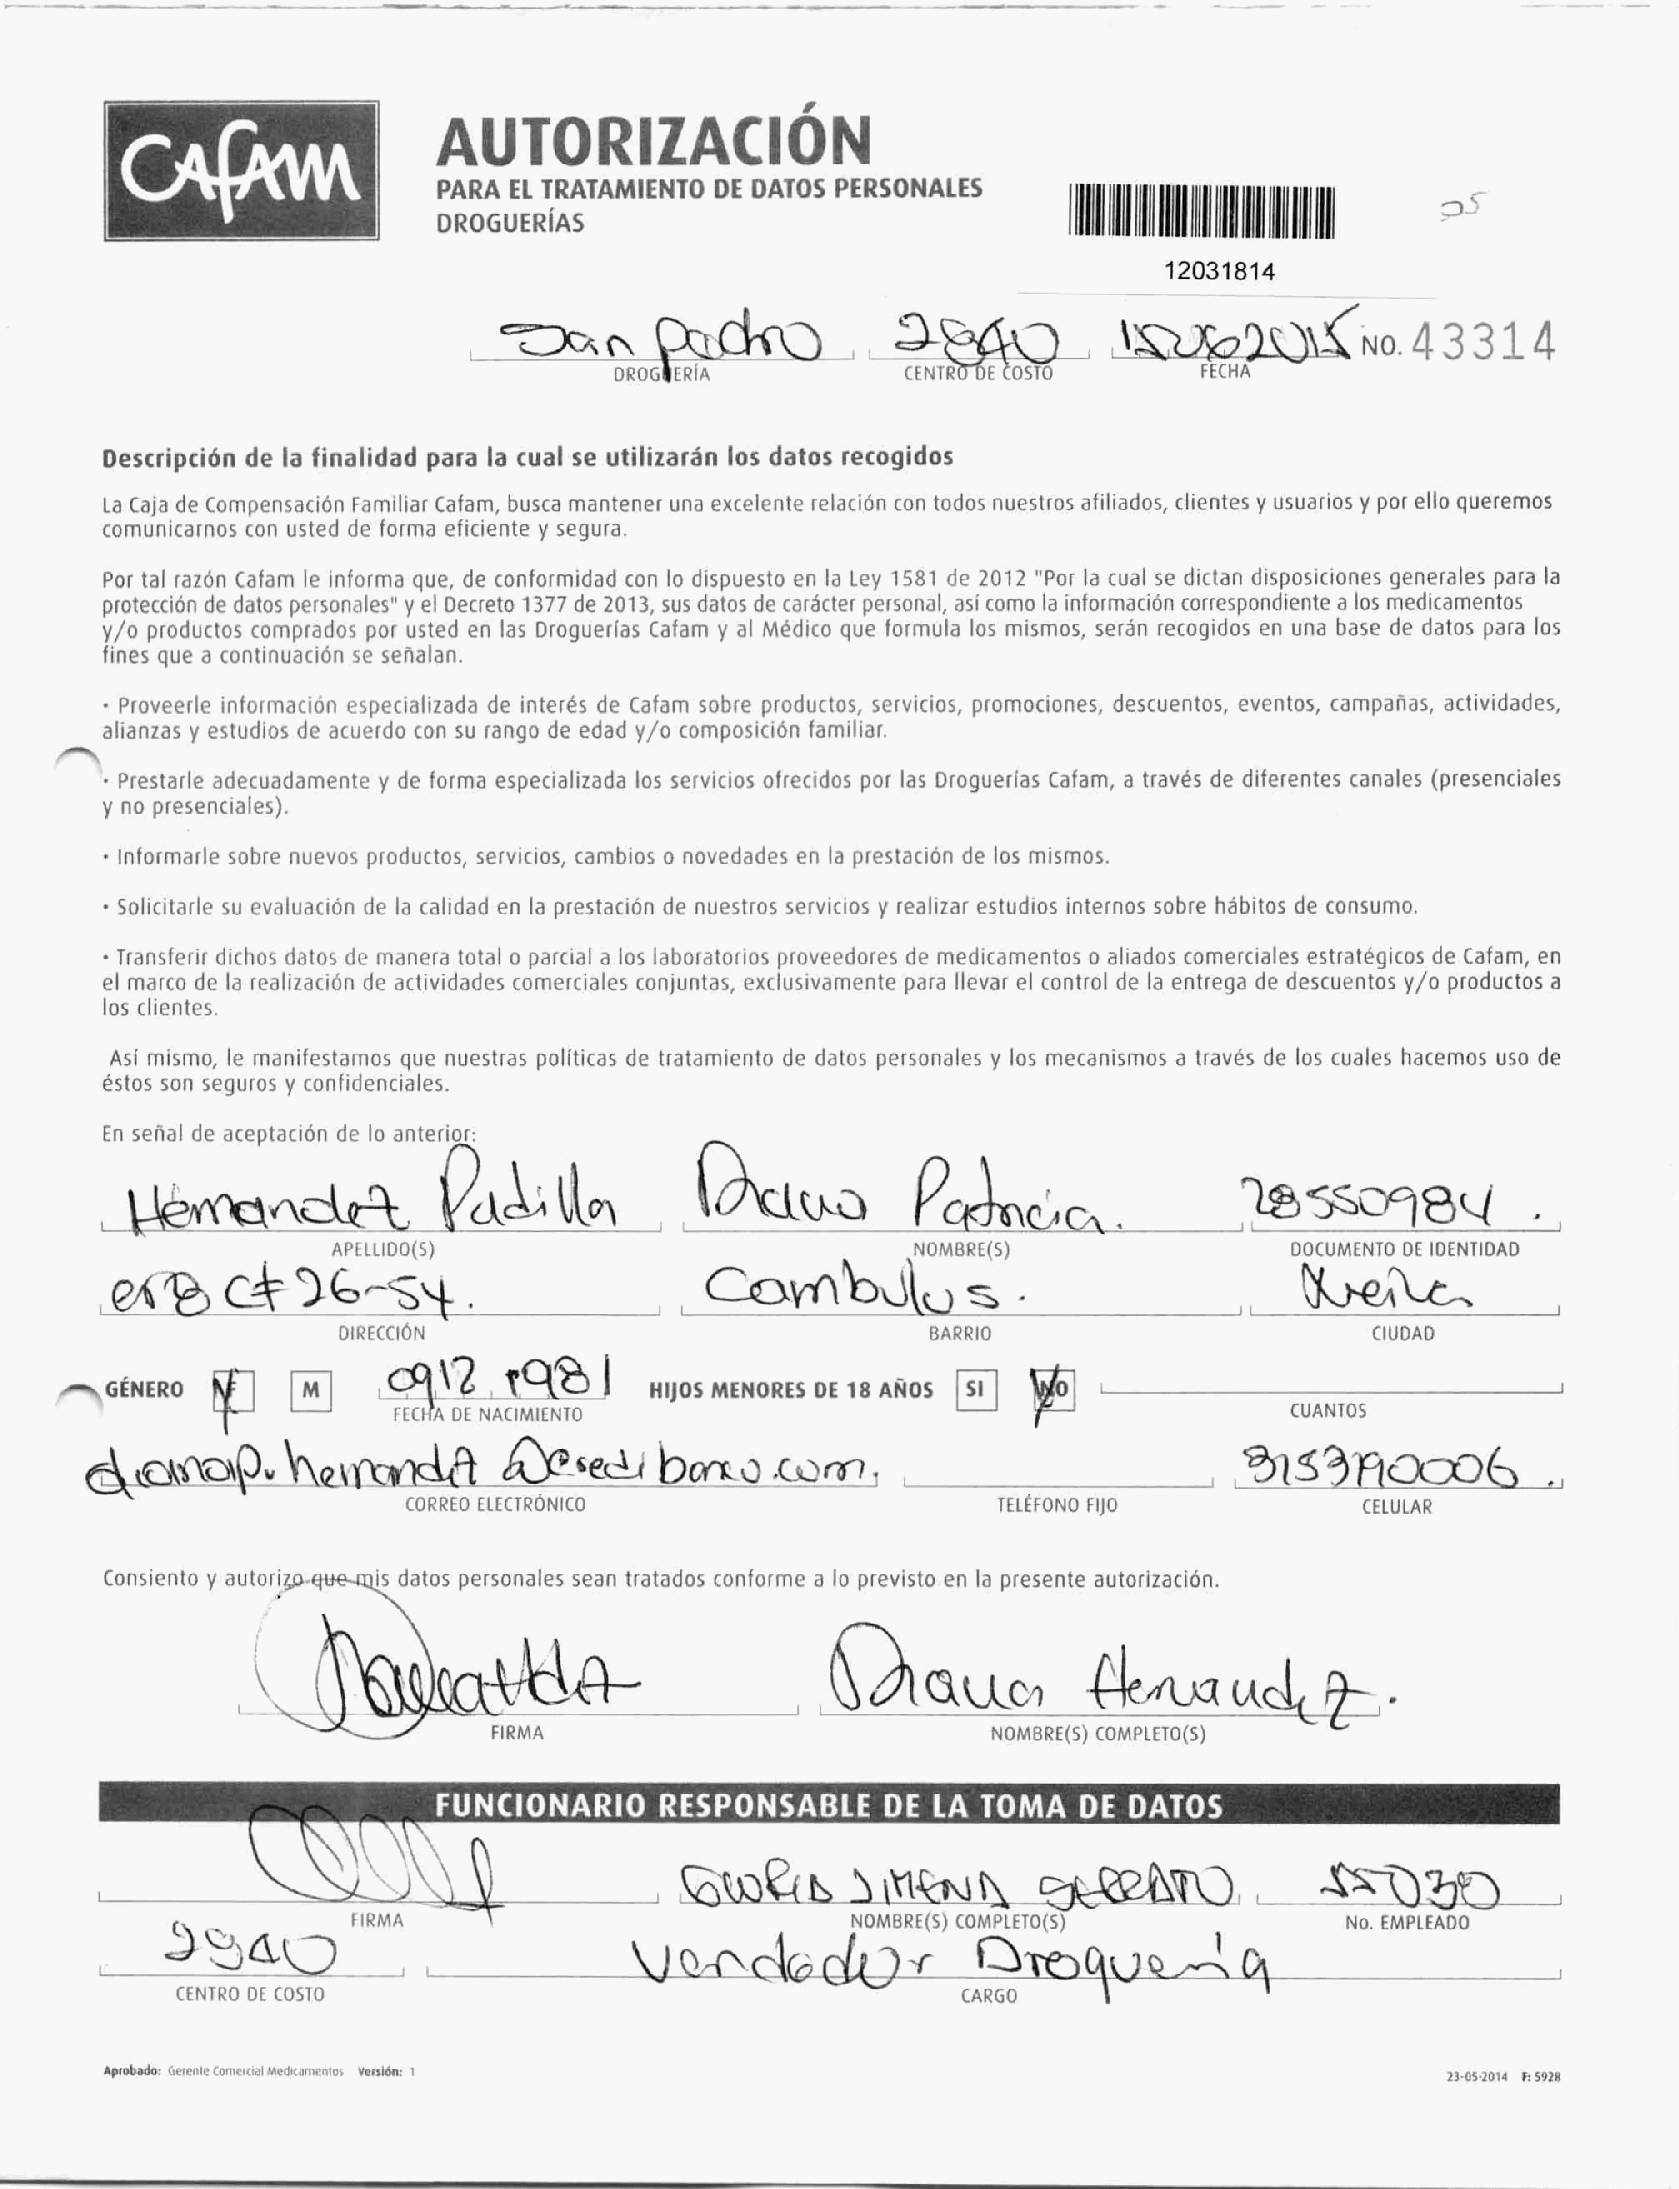 Cafam
AUTORIZACIÓN
PARA EL TRATAMIENTO DE DATOS PERSONALES
DROGUERÍAS
12031814
San Pedro 2840 15062015 NO. 43314
DROGUERÍA CENTRO DE COSTO FECHA
Descripción de la finalidad para la cual se utilizarán los datos recogidos
La Caja de Compensación Familiar Cafam, busca mantener una excelente relación con todos nuestros afiliados, clientes y usuarios y por ello queremos
comunicarnos con usted de forma eficiente y segura.
Por tal razón Cafam le informa que, de conformidad con lo dispuesto en la Ley 1581 de 2012 "Por la cual se dictan disposiciones generales para la
protección de datos personales" y el Decreto 1377 de 2013, sus datos de carácter personal, así como la información correspondiente a los medicamentos
y/o productos comprados por usted en las Droguerías Cafam y al Médico que formula los mismos, serán recogidos en una base de datos para los
fines que a continuación se señalan.
· Proveerle información especializada de interés de Cafam sobre productos, servicios, promociones, descuentos, eventos, campañas, actividades,
alianzas y estudios de acuerdo con su rango de edad y/o composición familiar.
· Prestarle adecuadamente y de forma especializada los servicios ofrecidos por las Droguerías Cafam, a través de diferentes canales (presenciales
y no presenciales).
· Informarle sobre nuevos productos, servicios, cambios o novedades en la prestación de los mismos.
· Solicitarle su evaluación de la calidad en la prestación de nuestros servicios y realizar estudios internos sobre hábitos de consumo.
· Transferir dichos datos de manera total o parcial a los laboratorios proveedores de medicamentos o aliados comerciales estratégicos de Cafam, en
el marco de la realización de actividades comerciales conjuntas, exclusivamente para llevar el control de la entrega de descuentos y/o productos a
los clientes.
Así mismo, le manifestamos que nuestras políticas de tratamiento de datos personales y los mecanismos a través de los cuales hacemos uso de
éstos son seguros y confidenciales.
En señal de aceptación de lo anterior:
Hernandez Padilla Diana Patricia. 28550984.
APELLIDO(S) NOMBRE(S) DOCUMENTO DE IDENTIDAD
26-54. Cambulos. Neiva
DIRECCIÓN BARRIO CIUDAD
GÉNERO F M 0912 1981 HIJOS MENORES DE 18 AÑOS SI NO
FECHA DE NACIMIENTO CUANTOS
3153190006.
CORREO ELECTRÓNICO TELÉFONO FIJO CELULAR
Consiento y autorizo que mis datos personales sean tratados conforme a lo previsto en la presente autorización.
Diana Hernandez.
FIRMA NOMBRE(S) COMPLETO(S)
FUNCIONARIO RESPONSABLE DE LA TOMA DE DATOS
GLORIA JIMENA 55030
FIRMA NOMBRE(S) COMPLETO(S) No. EMPLEADO
2840 Vendedor Droguería
CENTRO DE COSTO CARGO
Aprobado: Gerente Comercial Medicamentos Versión: 1
23-05-2014 F: 5928